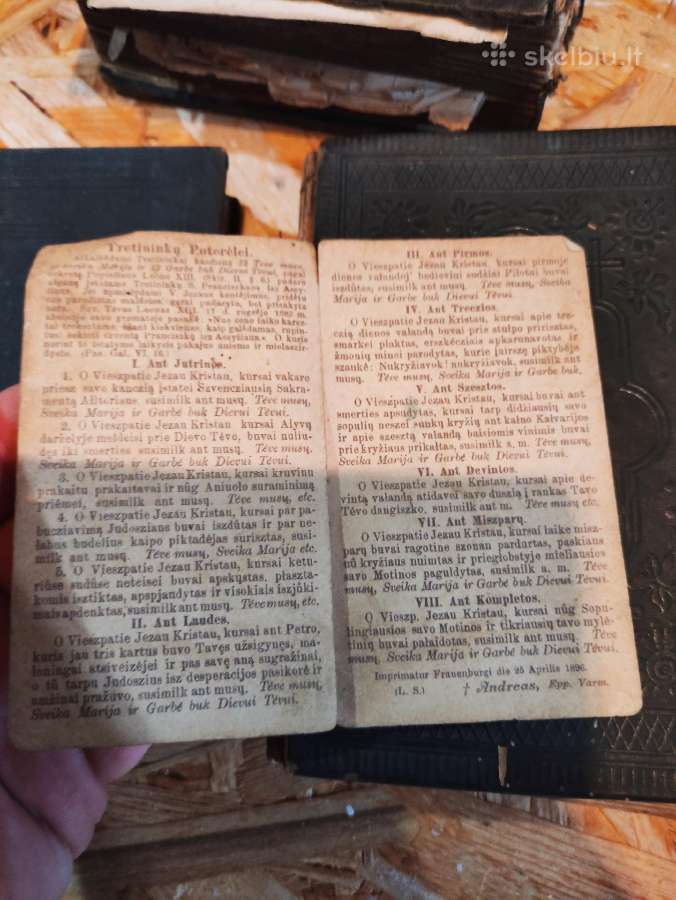 skelbiu.lt
Tretininkų Poterėlei.
I. Ant Jutrinės.
1. O Vieszpatie Jezau Kristau, kursai vakare
priesz savo kanczią įstatei Szvencziausią Sakra-
mentą Altoriaus, susimilk ant musų. Tėve musų,
Sveika Marija ir Garbė buk Dievui Tėvui.
2. O Vieszpatie Jezau Kristau kursai Alyvų
darželyje meldeisi prie Dievo Tėvo, buvai nuliu-
dęs iki smerties susimilk ant musų. Tėve musų,
Sveika Marija ir Garbė buk Dievui Tėvui.
3. O Vieszpatie Jezau Kristau, kursai kruvinu
prakaitu prakaitavai ir nūg Aniuolo suraminimą
priėmei, susimilk ant musų. Tėve musų, etc.
4. O Vieszpatie Jezau Kristau, kursai par pa-
bucziavimą Judosziaus buvai iszdūtas ir par ne-
labus budelius kaipo piktadėjas surisztas, susi-
milk ant musų. Tėve musų, Sveika Marija etc.
5. O Vieszpatie Jezau Kristau, kursai ketu-
riūse sudūse neteisei buvai apskųstas, plaszta-
komis isztiktas, apspjandytas ir visokiais iszjūki-
mais apdenktas, susimilk ant musų. Tėve musų, etc.
II. Ant Laudes.
O Vieszpatie Jezau Kristau, kursai ant Petro,
kuris jau tris kartus buvo Tavęs užsigynęs, ma-
loningai atsiveizėjei ir pas savę aną sugražinai,
o tū tarpu Judoszius isz desperacijos pasikorė ir
amžinai pražuvo, susimilk ant musų. Tėve musų,
Sveika Marija ir Garbė buk Dievui Tėvui.
III. Ant Pirmos.
O Vieszpatie Jezau Kristau, kursai pirmoje
dienos valandoj' bedieviui sudžiai Pilotui buvai
iszdūtas, susimilk ant musų. Tėve musų, Sveika
Marija ir Garbe buk Dievui Tėvui.
IV. Ant Treczios.
O Vieszpatie Jezau Kristau, kursai apie tre-
czią dienos valandą buvai prie stulpo pririsztas,
smarkei plaktas, erszkėcziais apkarunavotas ir
žmonių minei parodytas, kurie įairszę piktybėje
szaukė: Nukryžiavok! nukryžiavok, susimilk ant
musų. Tėve musų, Sveika Marija ir Garbe buk.
V. Ant Szesztos.
O Vieszpatie Jezau Kristau, kursai buvai ant
smerties apsudytas, kursai tarp didžiausių savo
sopulių neszei sunkų kryžių ant kalno Kalvarijos
ir apie szesztą valandą baisiomis vinimis buvai
prie kryžiaus prikaltas, susimilk a. m. Tėve musų,
Sveika Marija ir Garbe buk Dievui Tėvui.
VI. Ant Devintos.
O Vieszpatie Jezau Kristau, kursai apie de-
vintą valandą atidavei savo duszią į rankas Tavo
Tėvo dangiszko, susimilk ant musų. Tėve musų etc.
VII. Ant Miszparų.
O Vieszpatie Jezau Kristau, kursai laike misz-
parų buvai ragotine szonan pardurtas, paskiaus
nū kryžiaus nuimtas ir prieglobstyje mieliausios
savo Motinos paguldytas, susimilk a. m. Tėve
musų, Sveika Marija ir Garbe buk Dievui Tėvui.
VIII. Ant Kompletos.
O Vieszp. Jezau Kristau, kursai nūg Sopu-
lingiausios savo Motinos ir tikriausių tavo mylė-
tinių buvai palaidotas, susimilk ant musų. Tėve
musų, Sveika Marija ir Garbė buk Dievui Tėvui.
Imprimatur Frauenburgi die 25 Aprilis 1896.
(L. S.) † Andreas, Epp. Varm.